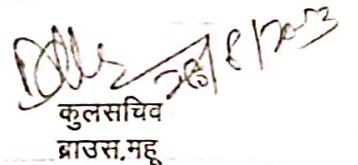 28/8/2023
कुलसचिव
ब्राउस,महू